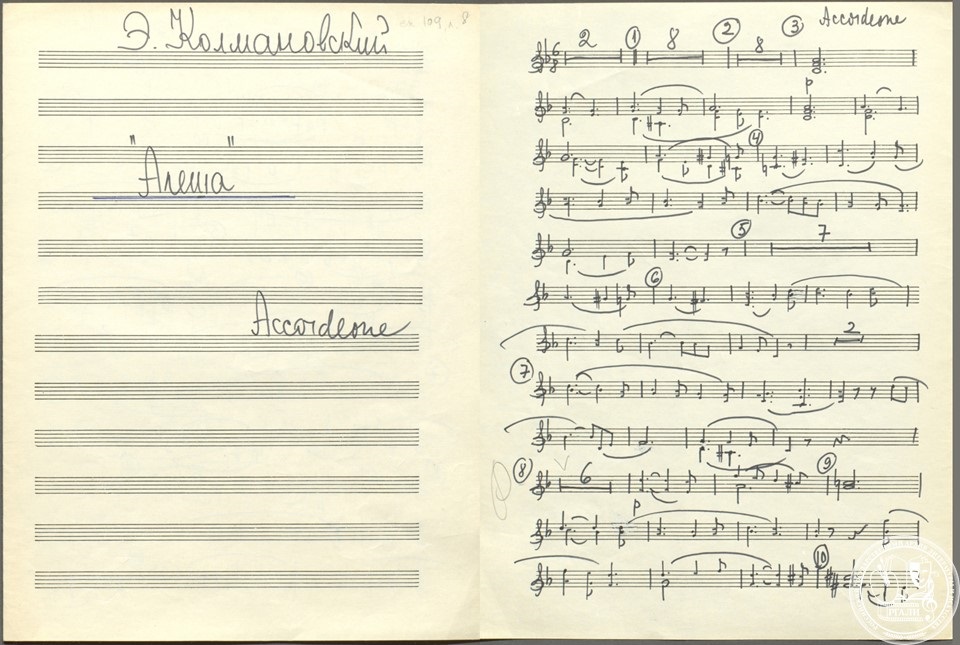 Э. Колмановский
"Алеша"
Accordeone
Accordeone
6
8
2 ① 8 ② 8 ③
p
④
⑤ 7
⑥
2
⑦
⑧ 6 ⑨
p
⑩